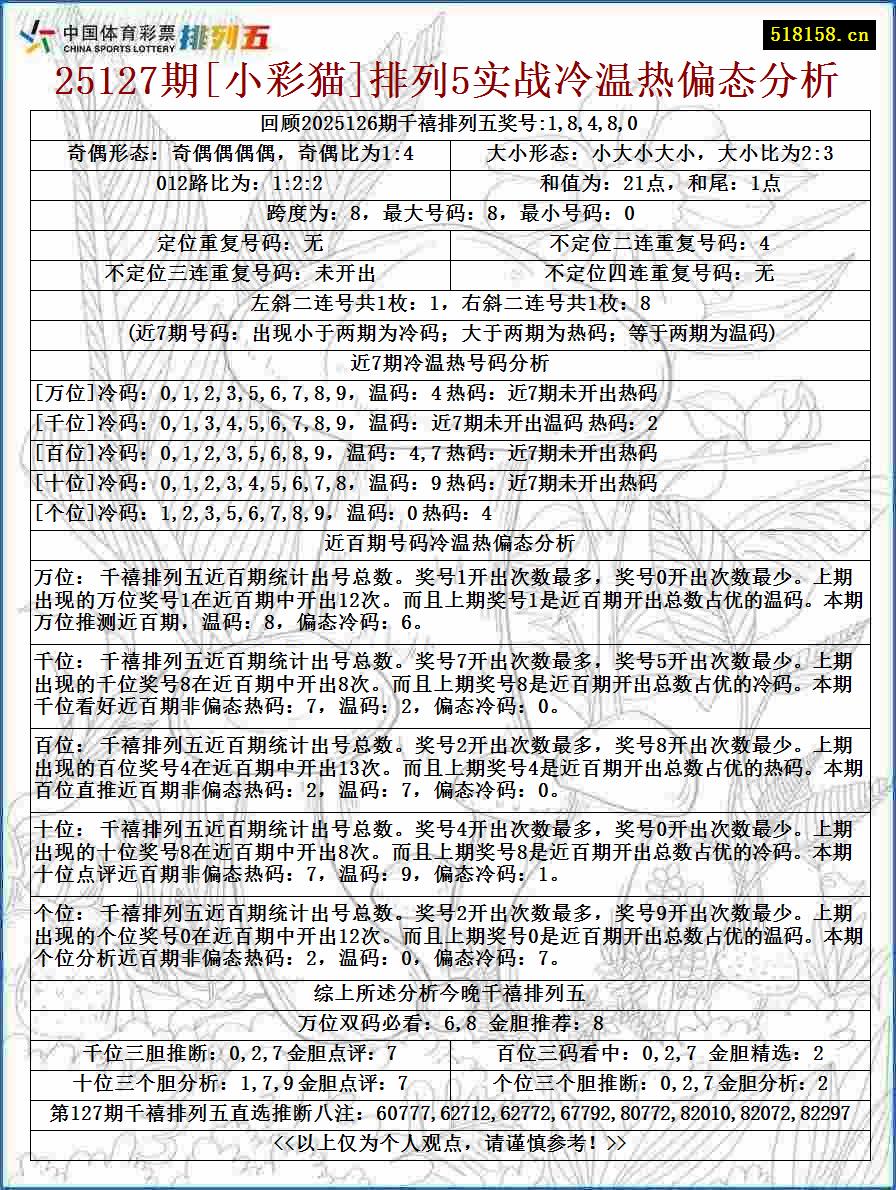 中国体育彩票 排列五
CHINA SPORTS LOTTERY
518158.cn
25127期[小彩猫]排列5实战冷温热偏态分析
回顾2025126期千禧排列五奖号:1,8,4,8,0
奇偶形态：奇偶偶偶偶，奇偶比为1:4
大小形态：小大小大小，大小比为2:3
012路比为：1:2:2
和值为：21点，和尾：1点
跨度为：8，最大号码：8，最小号码：0
定位重复号码：无
不定位二连重复号码：4
不定位三连重复号码：未开出
不定位四连重复号码：无
左斜二连号共1枚：1，右斜二连号共1枚：8
(近7期号码：出现小于两期为冷码；大于两期为热码；等于两期为温码)
近7期冷温热号码分析
[万位]冷码：0,1,2,3,5,6,7,8,9，温码：4 热码：近7期未开出热码
[千位]冷码：0,1,3,4,5,6,7,8,9，温码：近7期未开出温码 热码：2
[百位]冷码：0,1,2,3,5,6,8,9，温码：4,7 热码：近7期未开出热码
[十位]冷码：0,1,2,3,4,5,6,7,8，温码：9 热码：近7期未开出热码
[个位]冷码：1,2,3,5,6,7,8,9，温码：0 热码：4
近百期号码冷温热偏态分析
万位： 千禧排列五近百期统计出号总数。奖号1开出次数最多，奖号0开出次数最少。上期
出现的万位奖号1在近百期中开出12次。而且上期奖号1是近百期开出总数占优的温码。本期
万位推测近百期，温码：8，偏态冷码：6。
千位： 千禧排列五近百期统计出号总数。奖号7开出次数最多，奖号5开出次数最少。上期
出现的千位奖号8在近百期中开出8次。而且上期奖号8是近百期开出总数占优的冷码。本期
千位看好近百期非偏态热码：7，温码：2，偏态冷码：0。
百位： 千禧排列五近百期统计出号总数。奖号2开出次数最多，奖号8开出次数最少。上期
出现的百位奖号4在近百期中开出13次。而且上期奖号4是近百期开出总数占优的热码。本期
百位直推近百期非偏态热码：2，温码：7，偏态冷码：0。
十位： 千禧排列五近百期统计出号总数。奖号4开出次数最多，奖号0开出次数最少。上期
出现的十位奖号8在近百期中开出8次。而且上期奖号8是近百期开出总数占优的冷码。本期
十位点评近百期非偏态热码：7，温码：9，偏态冷码：1。
个位： 千禧排列五近百期统计出号总数。奖号2开出次数最多，奖号9开出次数最少。上期
出现的个位奖号0在近百期中开出12次。而且上期奖号0是近百期开出总数占优的温码。本期
个位分析近百期非偏态热码：2，温码：0，偏态冷码：7。
综上所述分析今晚千禧排列五
万位双码必看：6,8 金胆推荐：8
千位三胆推断：0,2,7 金胆点评：7
百位三码看中：0,2,7 金胆精选：2
十位三个胆分析：1,7,9 金胆点评：7
个位三个胆推断：0,2,7 金胆分析：2
第127期千禧排列五直选推断八注：60777,62712,62772,67792,80772,82010,82072,82297
<<以上仅为个人观点，请谨慎参考！>>